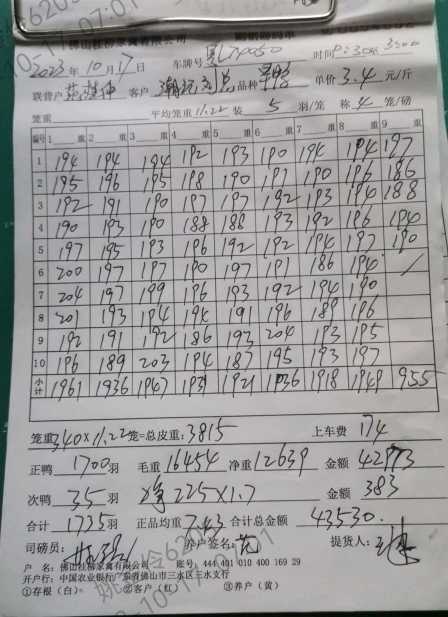 佛山桂柳家禽有限公司
2023年10月17日 车牌号 时间
联营户 客户 品种 单价3.4元/斤
笼重 平均笼重11.22 装5羽/笼 称4笼/磅
编号 1 重 2 重 3 重 4 重 5 重 6 重 7 重 8 重 9 重
1 194 194 194 192 193 190 194 194 197
2 195 196 195 198 190 191 190 196 186
3 192 191 190 197 197 192 193 194 188
4 190 193 190 188 188 193 192 196 190
5 197 195 193 196 192 192 194 197 190
6 200 197 197 190 197 191 186 194 /
7 204 197 199 196 193 192 194 190
8 201 193 194 194 191 196 189 196
9 192 191 192 186 193 204 193 195
10 196 189 203 194 187 195 193 197
小计 1961 1936 1947 1931 1921 1936 1918 1949 955
笼重340×11.22笼=总皮重:3815 上车费 174
正鸭 1700羽 毛重16454 净重12639 金额42973
次鸭 35羽 净225×1.7 金额383
合计 1735羽 正品均重7.43 合计总金额 43530.
司磅员: 养户签名: 提货人:
户 名:佛山桂柳家禽有限公司 账号:444 401 010 400 169 29
开户行:中国农业银行广东省佛山市三水区三水支行
①存根(白) ②客户(红) ③养户(黄)